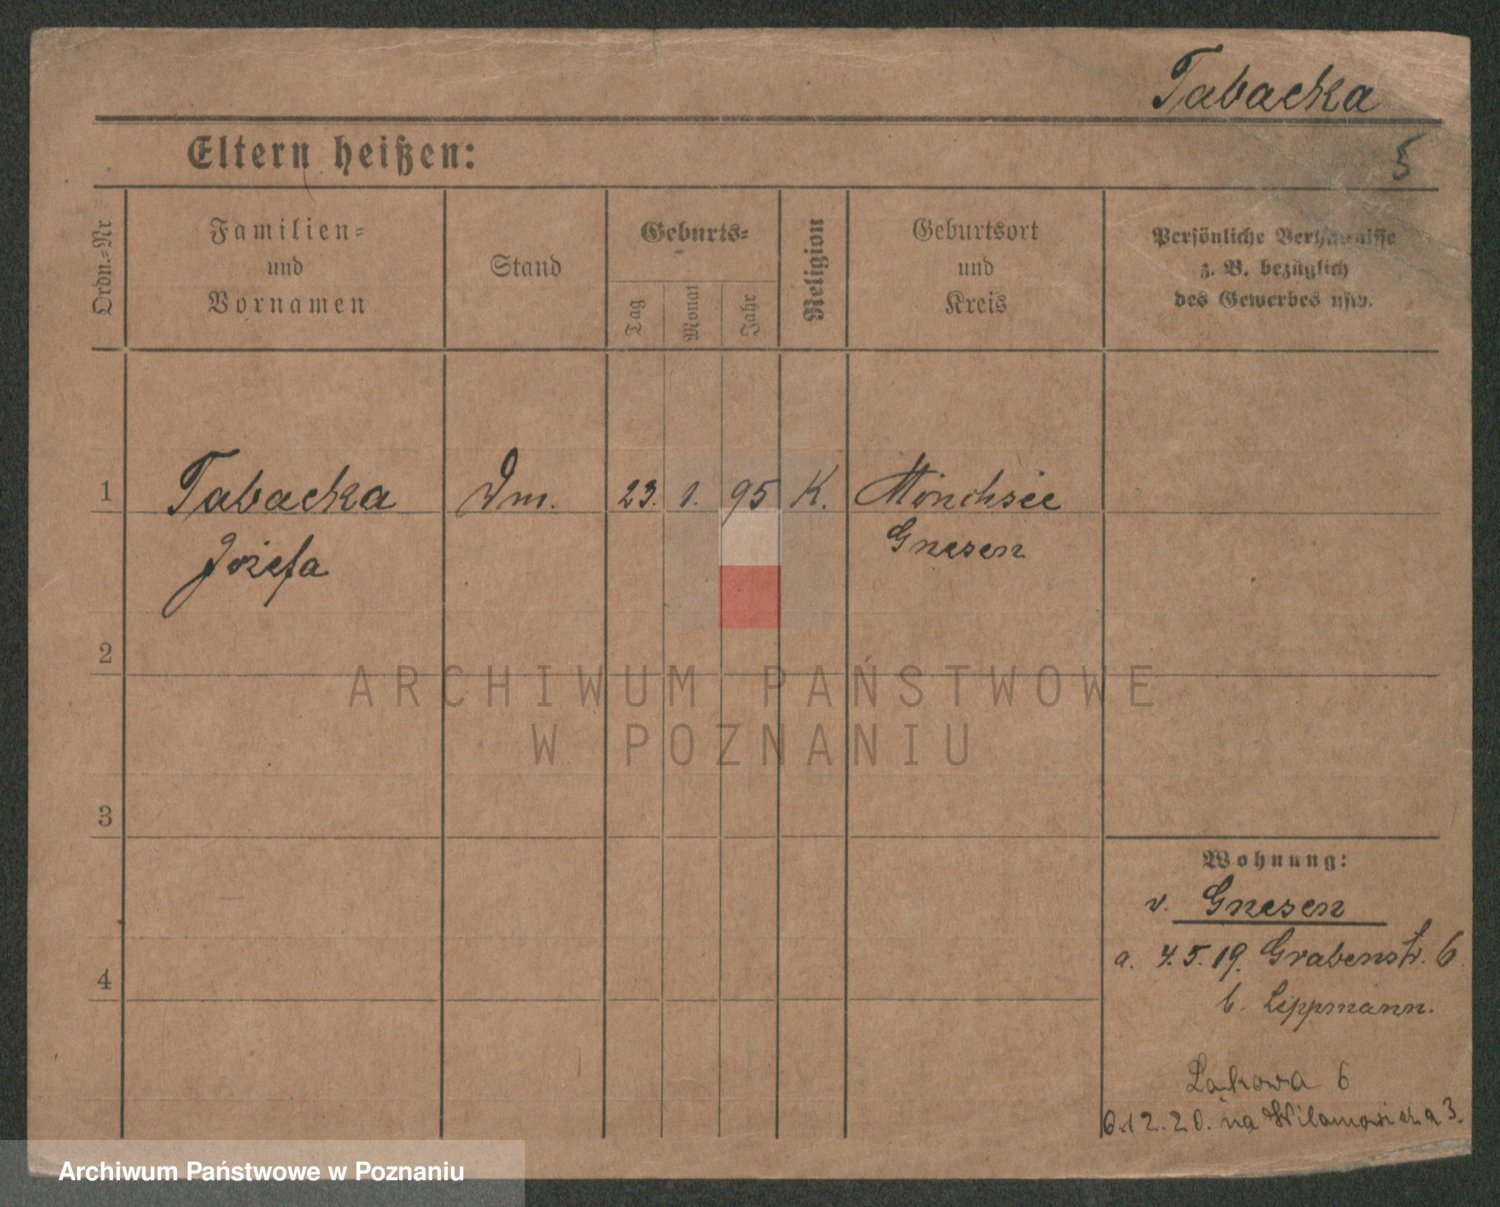 Tabacka
Eltern heißen:
5
Ordn.=Nr
Familien=
und
Vornamen
Stand
Geburts=
Tag
Monat
Jahr
Religion
Geburtsort
und
Kreis
Persönliche Verhältnisse
z. B. bezüglich
des Gewerbes usw.
1
Tabacka
Józefa
Dm.
23.
1.
95
K.
Mönchsee
Gnesen
2
ARCHIWUM PAŃSTWOWE
W POZNANIU
3
Wohnung:
v. Gnesen
a. 7.5.19. Grabenstr. 6
b. Lippmann.
4
Łąkowa 6
6.12.20. na 3.
Archiwum Państwowe w Poznaniu